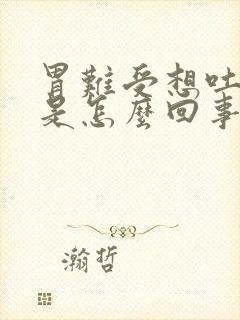 胃難受想吐
是怎麼回事
瀚哲